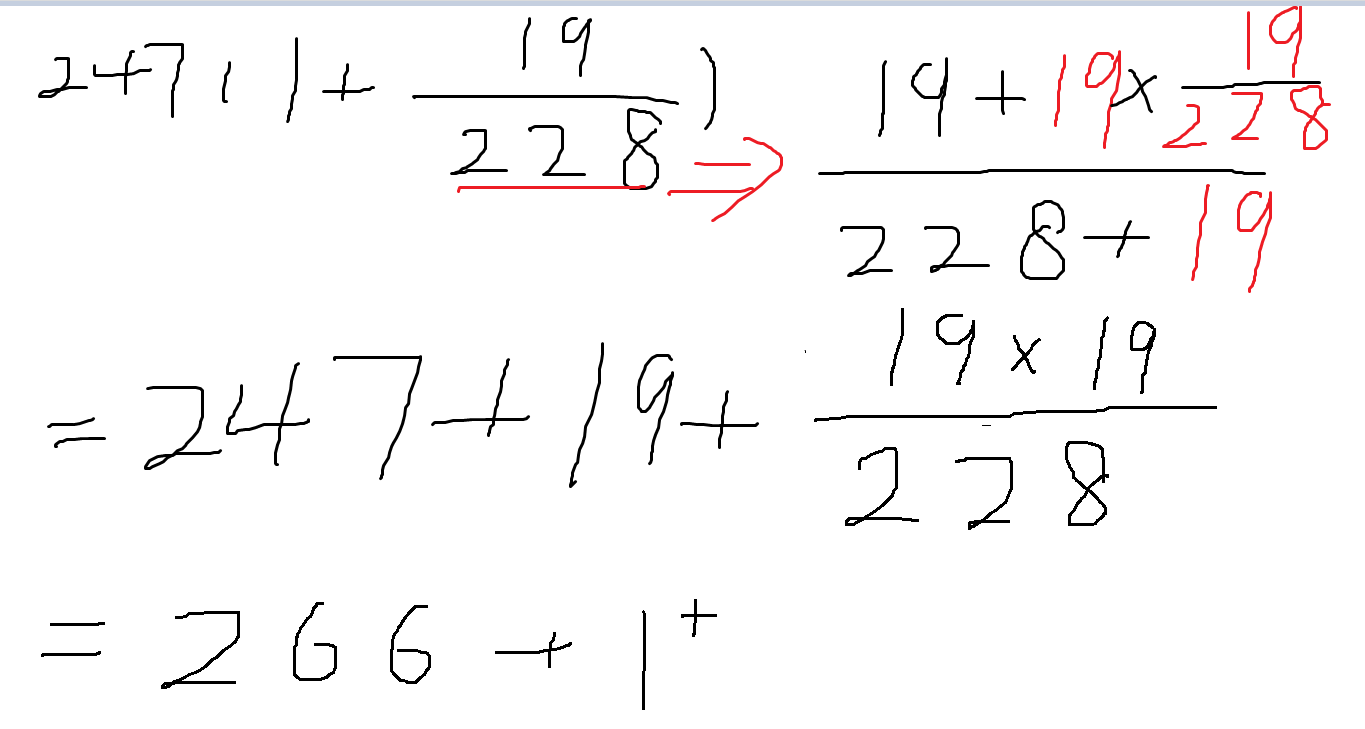 247(1+19/228) ⇒ (19+19×19/228)/(228+19)
=247+19+(19×19)/228
=266+1⁺